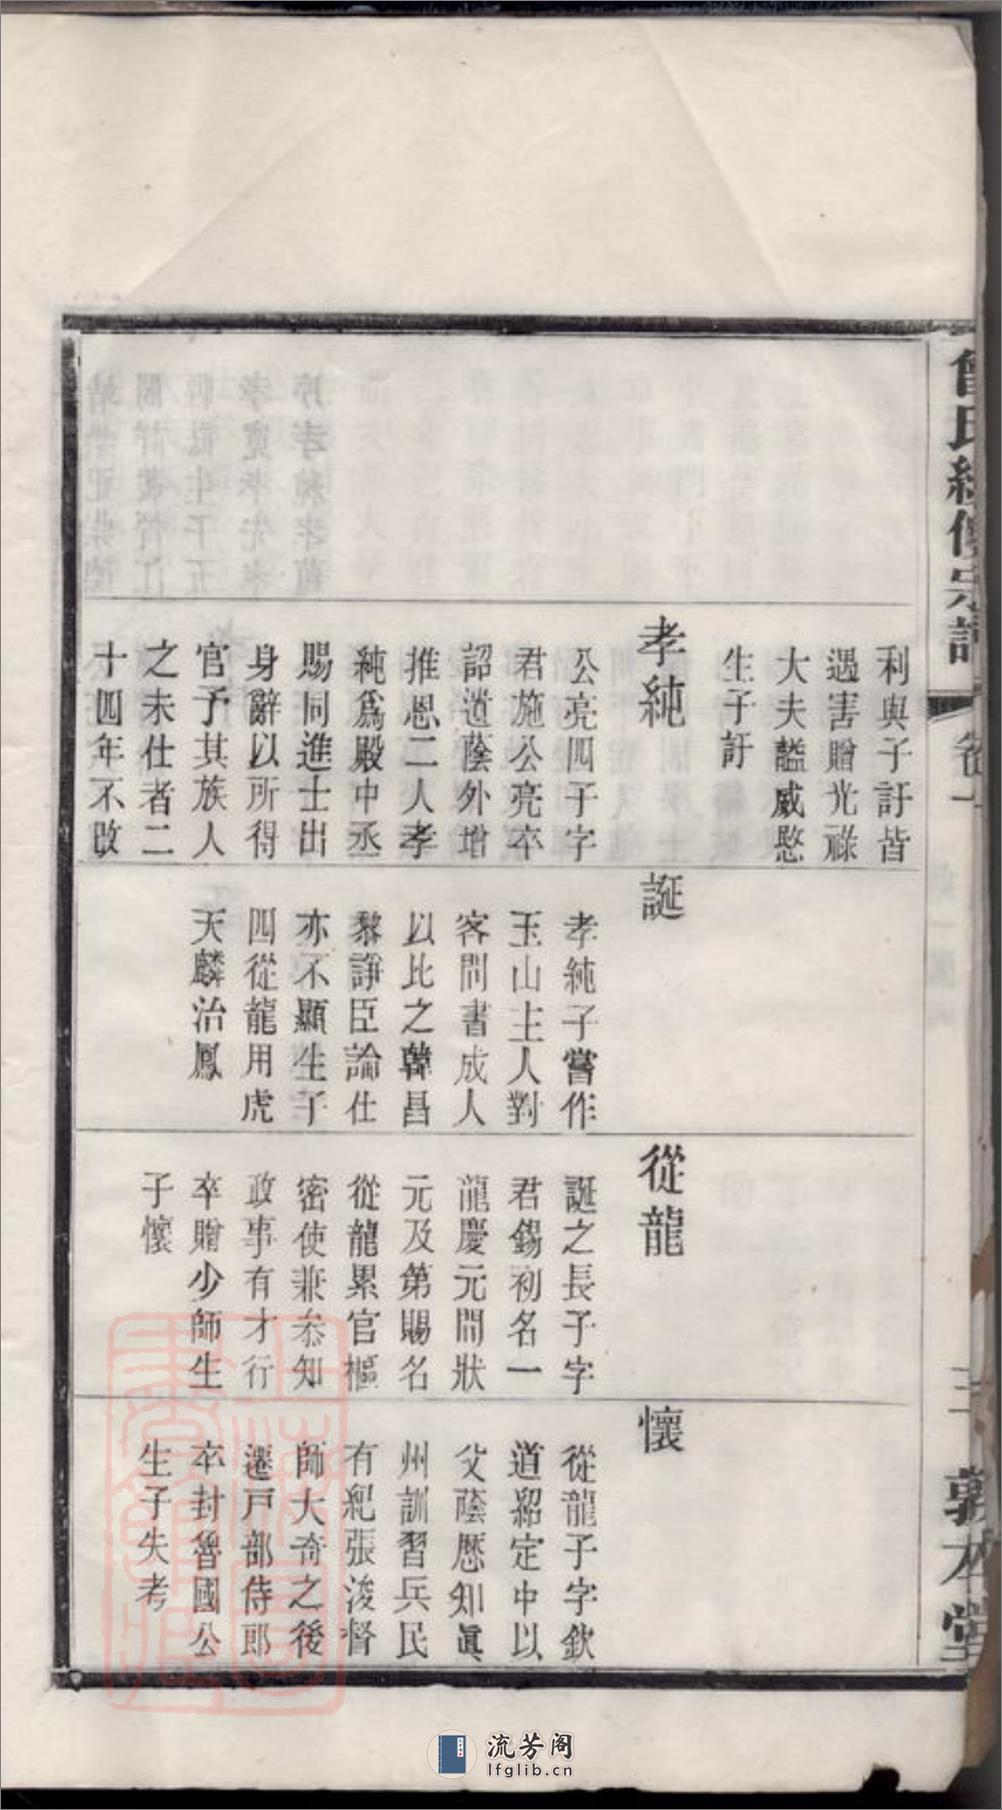 曾氏續修宗譜
卷一
三
敦本堂
利與子訏皆
遇害贈光祿
大夫謚威愍
生子訏
孝純
公亮四子字
君施公亮卒
詔遺蔭外增
推恩二人孝
純爲殿中丞
賜同進士出
身辭以所得
官予其族人
之未仕者二
十四年不改
誕
孝純子嘗作
玉山主人對
客問書成人
以比之韓昌
黎諍臣論仕
亦不顯生子
四從龍用虎
天麟治鳳
從龍
誕之長子字
君錫初名一
龍慶元間狀
元及第賜名
從龍累官樞
密使兼叅知
政事有才行
卒贈少師生
子懷
懷
從龍子字欽
道紹定中以
父蔭歷知眞
州訓習兵民
有紀張浚督
師大奇之後
遷戸部侍郎
卒封魯國公
生子失考
流芳阁
lfglib.cn